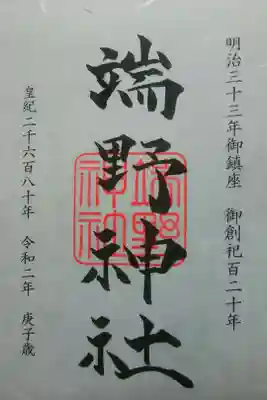 明治三十三年御鎮座　御創祀百二十年
端野神社
端野神社
皇紀二千六百八十年　令和二年　庚子歳